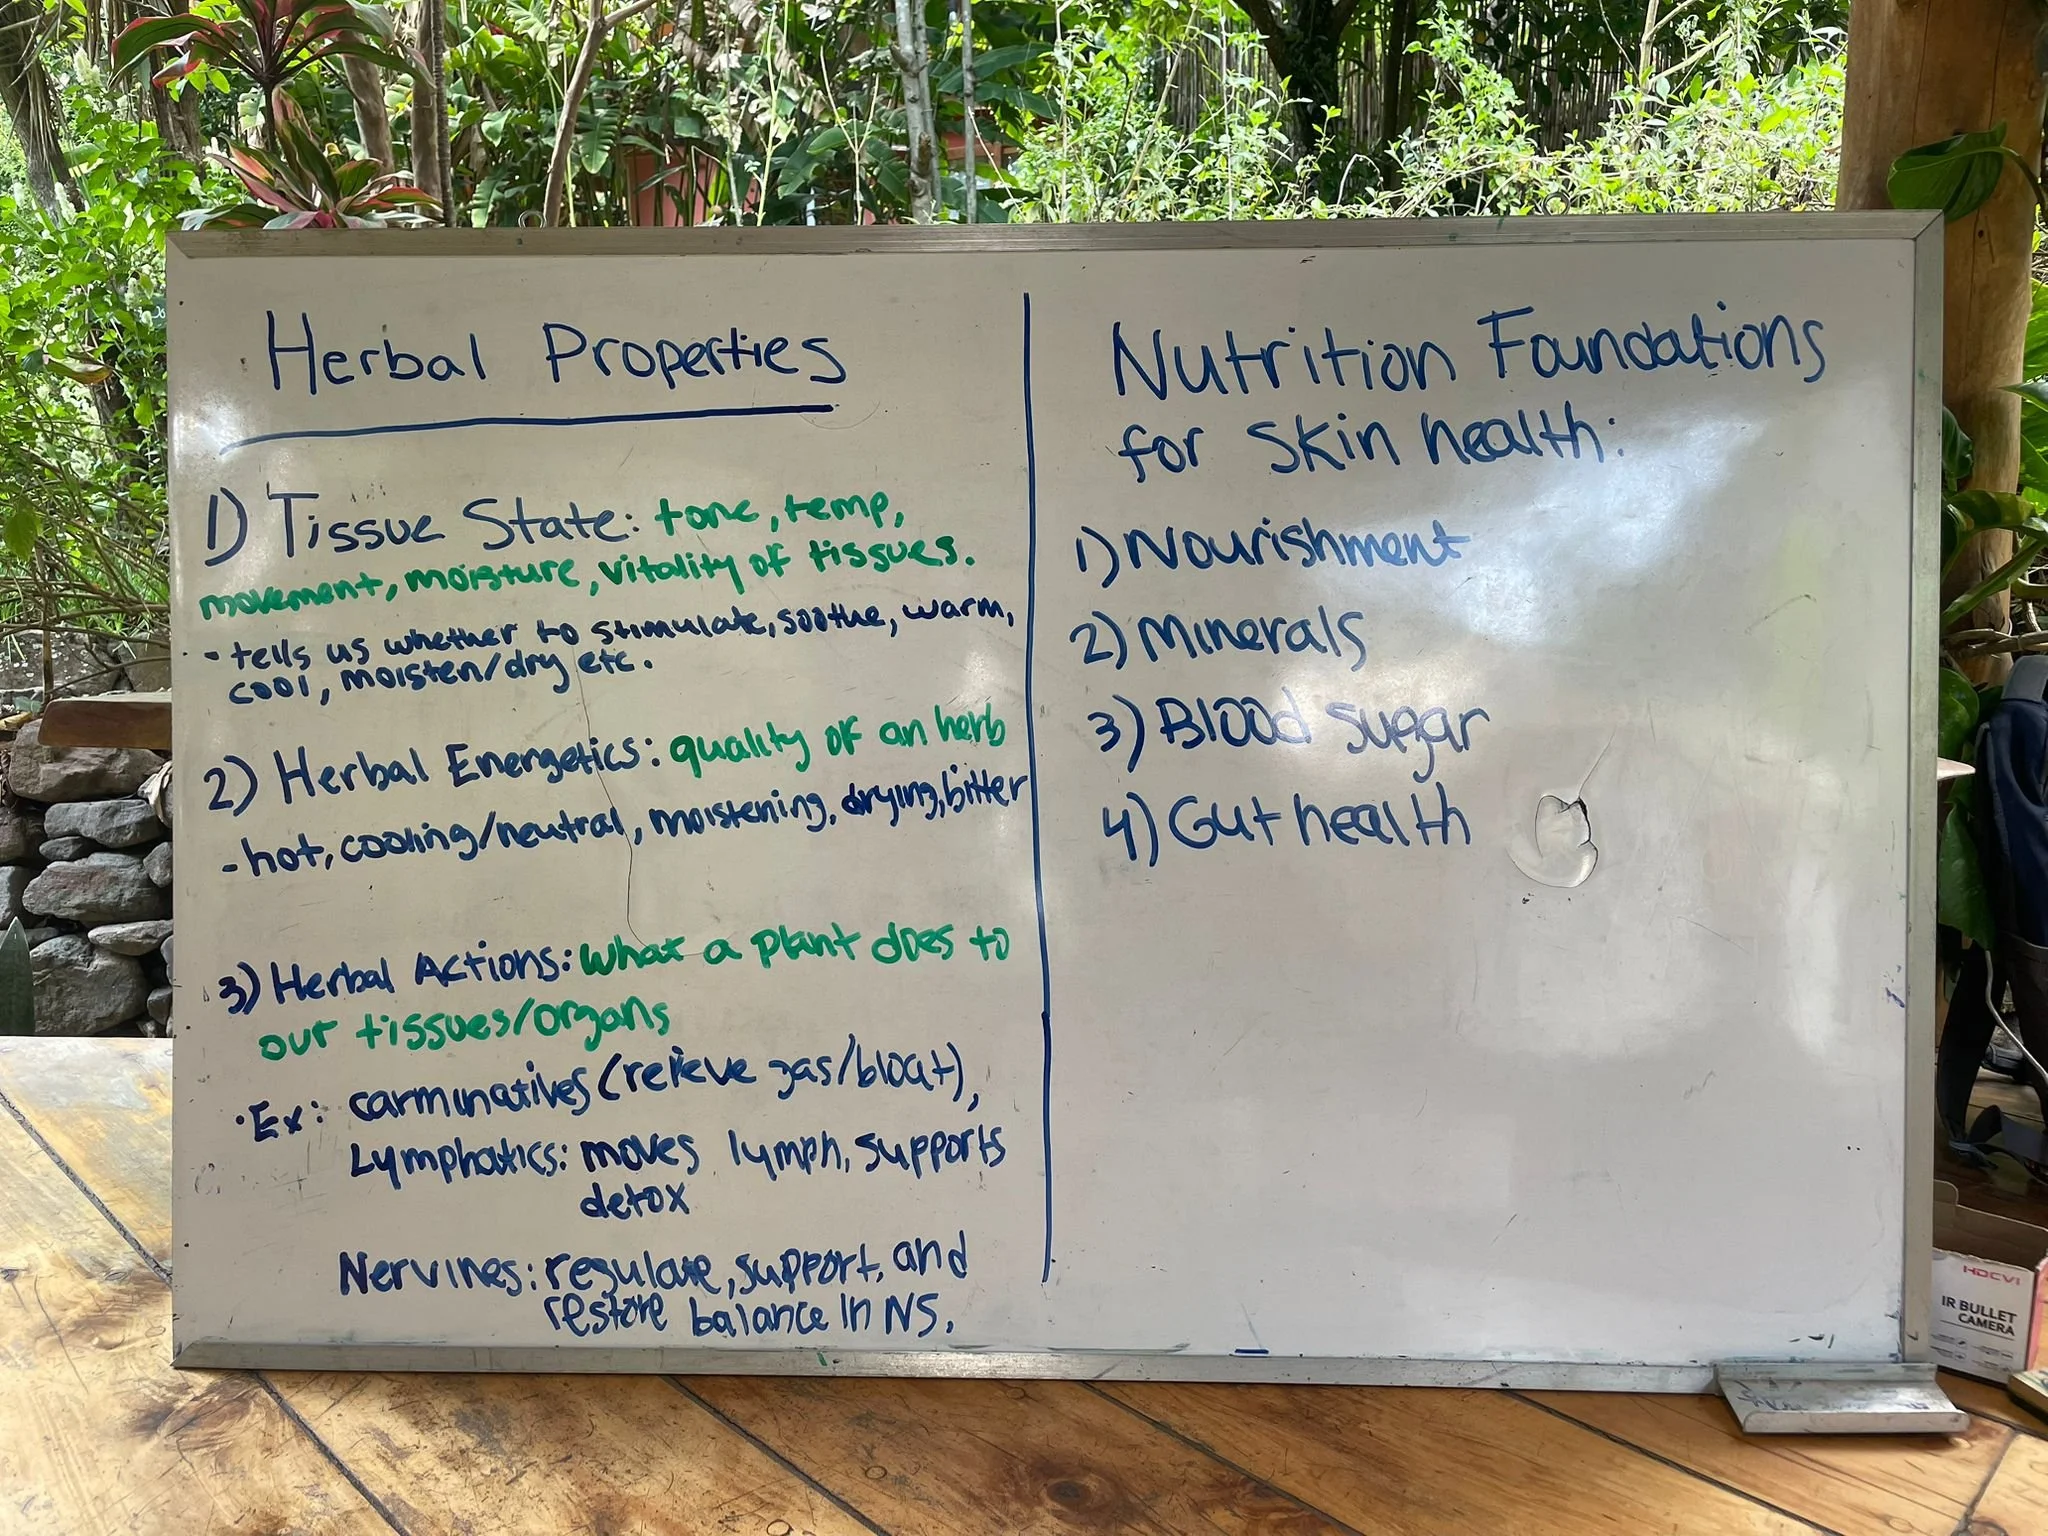 Herbal Properties
1) Tissue State: tone, temp,
movement, moisture, vitality of tissues.
- tells us whether to stimulate, soothe, warm,
cool, moisten/dry etc.
2) Herbal Energetics: quality of an herb
- hot, cooling/neutral, moistening, drying, bitter
3) Herbal Actions: what a plant does to
our tissues/organs
· Ex: carminatives (relieve gas/bloat),
Lymphatics: moves lymph, supports
detox
Nervines: regulate, support, and
restore balance in NS.
Nutrition Foundations
for skin health:
1) Nourishment
2) Minerals
3) Blood sugar
4) Gut health
HDCVI
IR BULLET
CAMERA